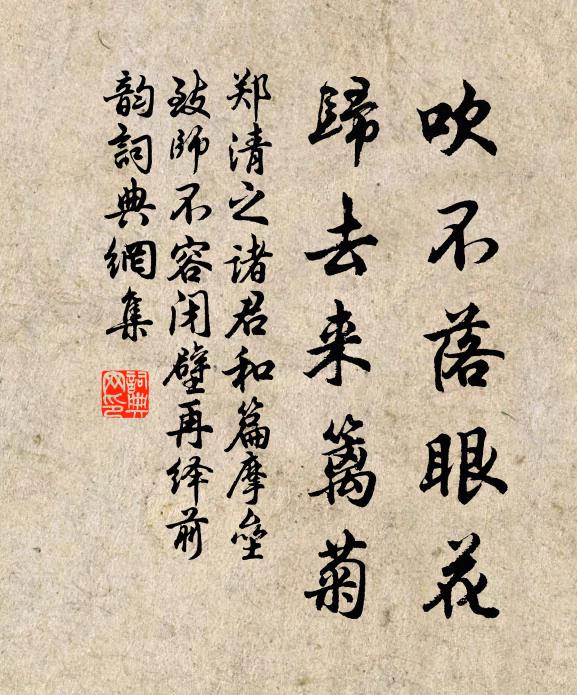 吹不落眼花
歸去来籬菊
郑清之诸君和篇摩垒
致师不容闭壁再绎前
韵詞典網集
詞典
网印